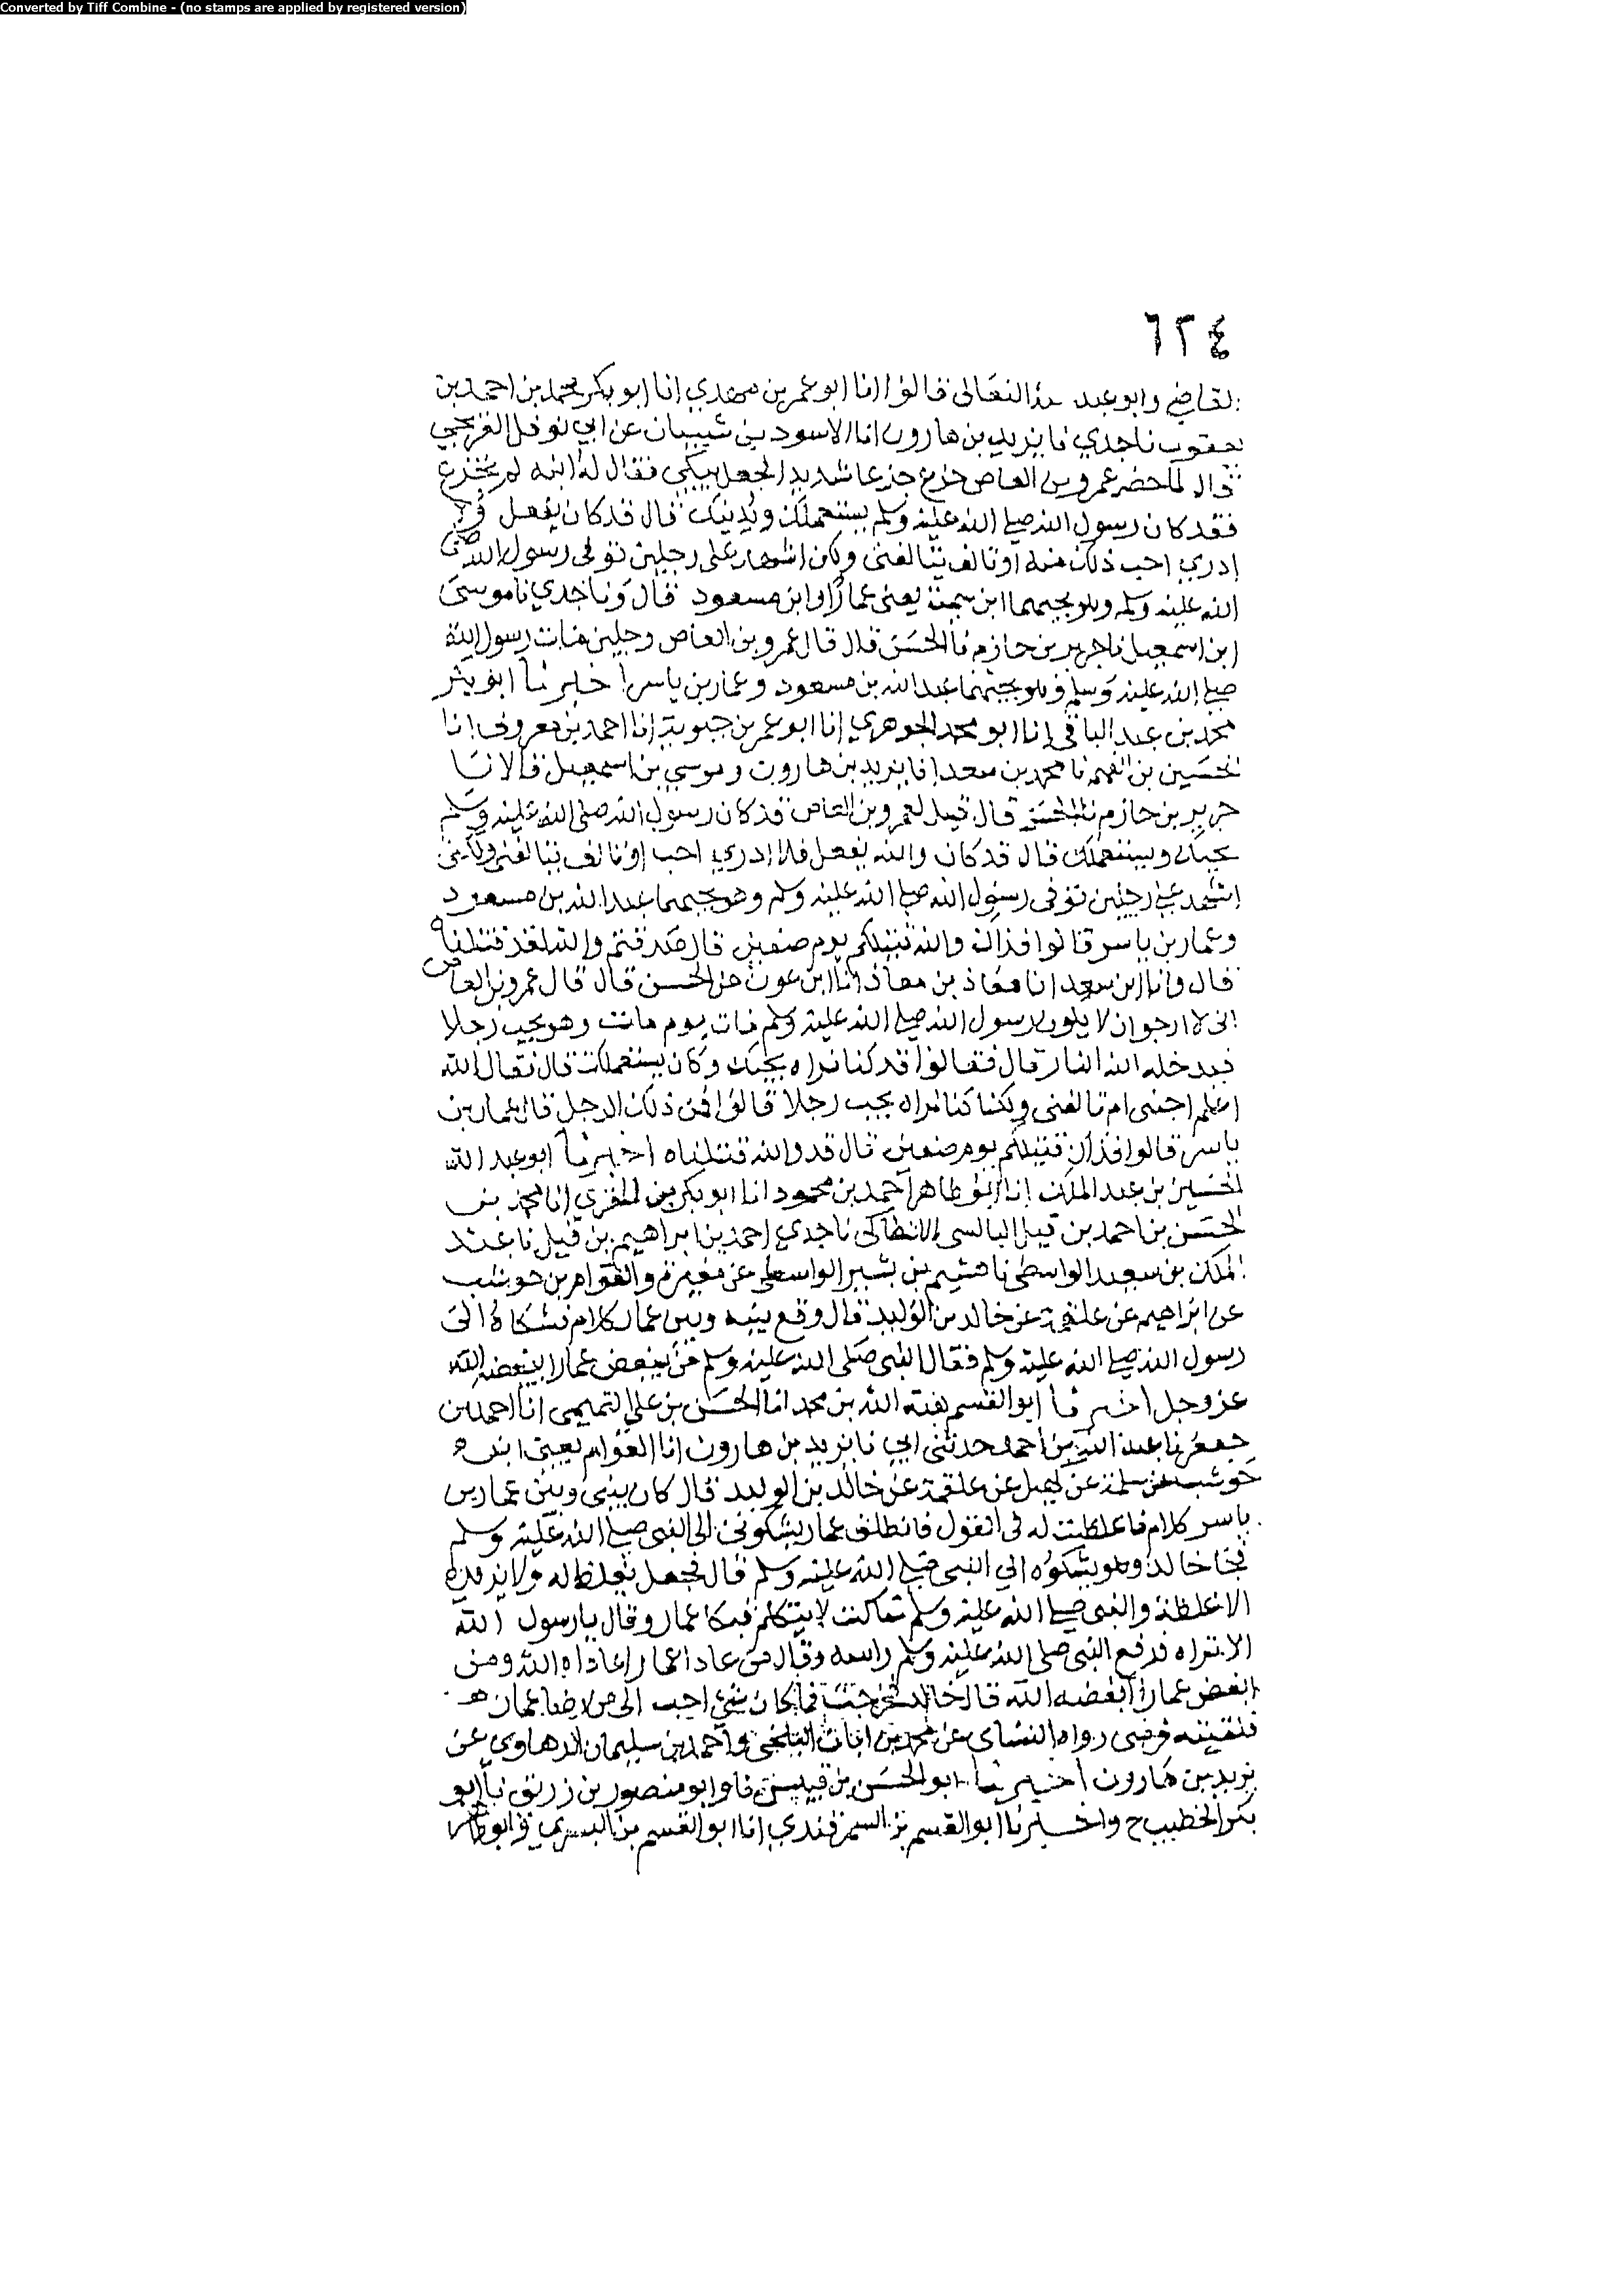 Converted by Tiff Combine - (no stamps are applied by registered version)
٦٢٤
القاضي وابو عبد النعالى قالوا انا ابو عمر بن مهدي انا ابو بكر محمد بن احمد بن
يعقوب نا جدي نا يزيد بن هارون انا الاسود بن شيبان عن ابي نوفل العريجي
قال لما حضر عمرو بن العاص جزع جزعا شديدا لجعل يبكي فقال له ابنه لم تجزع
فقد كان رسول الله صلى الله عليه وسلم يستعملك ويدنيك قال قد كان يفعل
ادري احب ذلك منه او تالف يتالفنى ولكن اشهد على رجلين توفى رسول الله صلى
الله عليه وسلم وهو يحبهما ابن سمية يعنى عمارا وابن مسعود قال ونا جدي نا موسى
ابن اسمعيل نا جرير بن حازم نا الحسن قال قال عمرو بن العاص رجلين مات رسول الله
صلى الله عليه وسلم وهو يحبهما عبد الله بن مسعود وعمار بن ياسر اخبرنا ابو بكر
محمد بن عبد الباقى انا ابو محمد الجوهري انا ابو عمر بن حيوية انا احمد بن معروف انا
الحسين بن الفهم نا محمد بن سعد انا يزيد بن هارون وموسى بن اسمعيل قالا نا
جرير بن حازم نا الحسن قال قيل لعمرو بن العاص قد كان رسول الله صلى الله عليه وسلم
يحبك ويستعملك قال قد كان والله يفعل فلا ادري احب او تالف يتالفنى ولكنى
اشهد على رجلين توفى رسول الله صلى الله عليه وسلم وهو يحبهما عبد الله بن مسعود
وعمار بن ياسر قالوا فذاك والله قتيلكم يوم صفين قال صدقتم والله لقد قتلناه
قال وانا ابن سعد انا معاذ بن معاذ انا ابن عون عن الحسن قال قال عمرو بن العاص
انى لارجو ان لا يكون رسول الله صلى الله عليه وسلم مات يوم مات وهو يحب رجلا
فيدخله الله النار قال فقالوا قد كنا نراه يحبك وكان يستعملك قال فقال الله
اعلم احبنى ام تالفنى ولكنا كنا نراه يحب رجلا قالوا فمن ذلك الرجل قال عمار بن
ياسر قالوا فذاك قتيلكم يوم صفين قال قد والله قتلناه اخبرنا ابو عبد الله
الحسين بن عبد الملك انا ابو طاهر احمد بن محمود انا ابو بكر بن المقري انا محمد بن
الحسن بن احمد بن فيل البالسى الانطاكى نا جدي احمد بن ابراهيم بن فيل نا عبد
الملك بن سعيد الواسطى نا هشيم بن بشير الواسطى عن مغيرة والعوام بن حوشب
عن ابراهيم عن علقمة عن خالد بن الوليد قال وقع بينه وبين عمار كلام فشكاه الى
رسول الله صلى الله عليه وسلم فقال النبى صلى الله عليه وسلم من يبغض عمارا يبغضه الله
عز وجل اخبرنا ابو القسم هبة الله بن محمد انا الحسن بن على التميمى انا احمد بن
جعفر نا عبد الله بن احمد حدثنى ابي نا يزيد بن هارون انا العوام يعنى ابن
حوشب عن سلمة بن كهيل عن علقمة عن خالد بن الوليد قال كان بينى وبين عمار بن
ياسر كلام فاغلظت له فى القول فانطلق عمار يشكونى الى النبى صلى الله عليه وسلم
فجا خالد وهو يشكوه الى النبى صلى الله عليه وسلم قال فجعل يغلظ له ولا يزيده
الا غلظة والنبى صلى الله عليه وسلم ساكت لا يتكلم فبكا عمار وقال يا رسول الله
الا تراه فرفع النبى صلى الله عليه وسلم راسه وقال من عادا عمارا عاداه الله ومن
ابغض عمارا ابغضه الله قال خالد فخرجت فما كان شي احب الى من رضا عمار
فلقيته فرضى رواه النساى عن محمد بن ابان البلخى واحمد بن سليمان الرهاوي عن
يزيد بن هارون اخبرنا ابو الحسن بن قبيس نا وابو منصور بن زريق نا ابو
بكر الخطيب ح واخبرنا ابو القسم بن السمرقندي انا ابو القسم بن البسري وابو طاهر